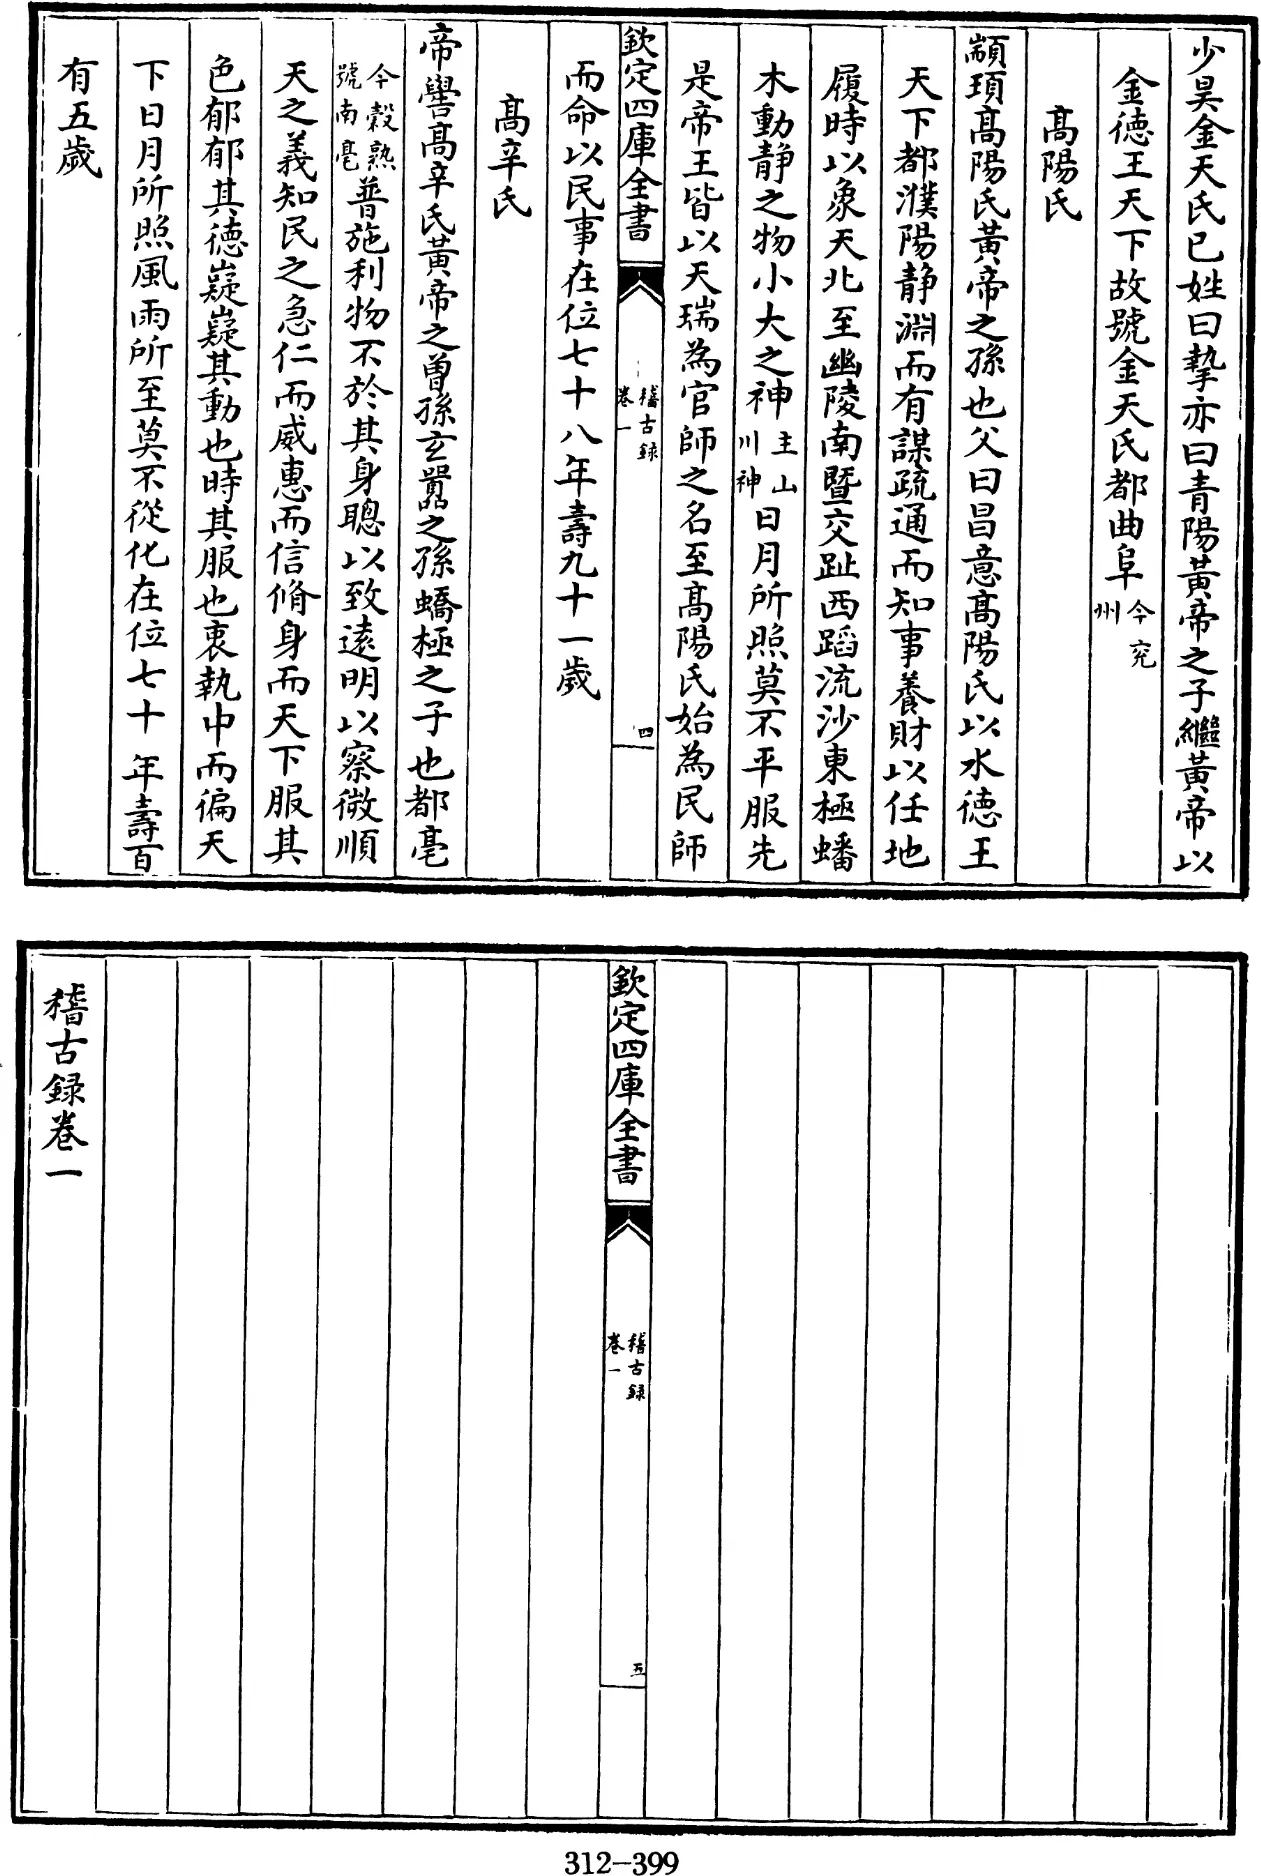 少昊金天氏已姓曰摯亦曰青陽黃帝之子繼黃帝以
金徳王天下故號金天氏都曲阜今兖州
髙陽氏
顓頊髙陽氏黃帝之孫也父曰昌意髙陽氏以水徳王
天下都濮陽静淵而有謀疏通而知事養財以任地
履時以象天北至幽陵南暨交趾西蹈流沙東極蟠
木動静之物小大之神主山川神日月所照莫不平服先
是帝王皆以天瑞為官師之名至髙陽氏始為民師
欽定四庫全書
稽古録
卷一
四
而命以民事在位七十八年壽九十一歲
髙辛氏
帝嚳髙辛氏黃帝之曽孫玄囂之孫蟜極之子也都亳
今穀熟號南亳普施利物不於其身聰以致逺明以察微順
天之義知民之急仁而威惠而信脩身而天下服其
色郁郁其徳嶷嶷其動也時其服也衷執中而徧天
下日月所照風雨所至莫不從化在位七十年壽百
有五歲
欽定四庫全書
稽古録
卷一
五
稽古録卷一
312-399